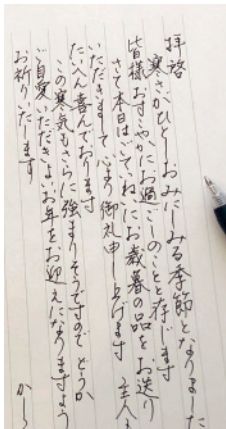 拝啓
寒さがひとしおみにしみる季節となりました
皆様おすこやかにお過ごしのことと存じます
さて本日はごていねいにお歳暮の品をお送り
いただきまして心より御礼申し上げます 主人も
たいへん喜んでおります
この寒気もさらに強まりそうですので どうか
ご自愛いただきよいお年をお迎えになりますよう
お祈りいたします
かしこ